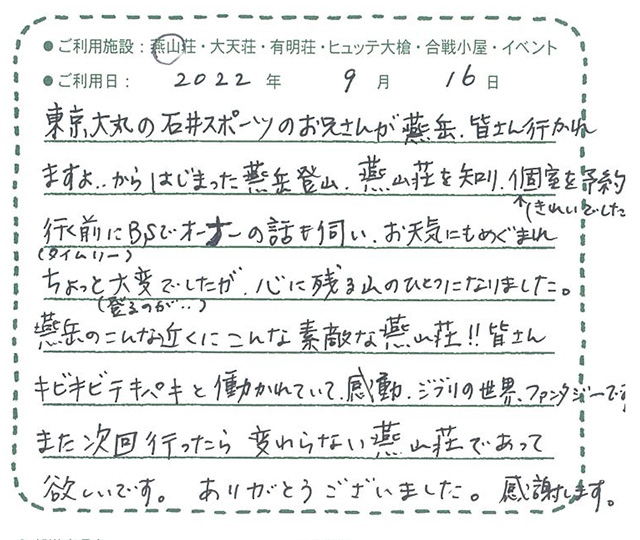 ●ご利用施設：燕山荘・大天荘・有明荘・ヒュッテ大槍・合戦小屋・イベント
●ご利用日： 2022 年 9 月 16 日
東京大丸の石井スポーツのお兄さんが燕岳、皆さん行かれ
ますよ‥からはじまった燕岳登山、燕山荘を知り、個室を予約
↑きれいでした
行く前にBSでオーナーの話も伺い、お天気にもめぐまれ
(タイムリー)
ちょっと大変でしたが、心に残る山のひとつになりました。
(登るのが‥)
燕岳のこんな近くにこんな素敵な燕山荘!!皆さん
キビキビテキパキと働かれていて、感動、ジブリの世界、ファンタジーです
また次回行ったら変わらない燕山荘であって
欲しいです。 ありがとうございました。 感謝します。